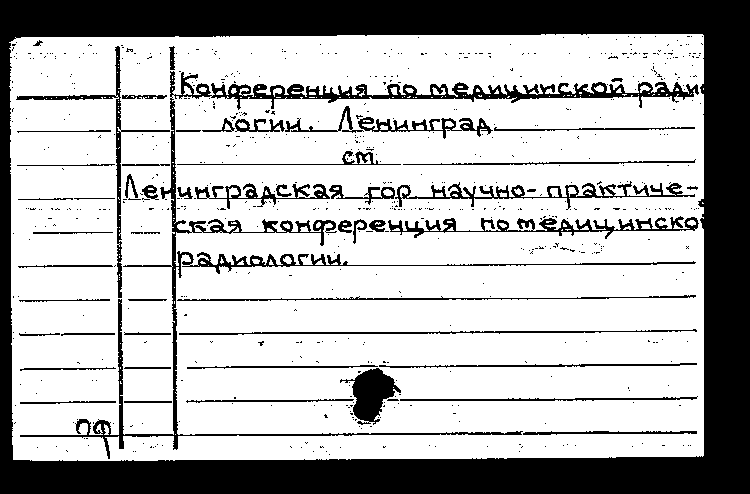 Конференция по медицинской радио
логии. Ленинград.
см.
Ленинградская гор научно-практиче-
ская конференция по медицинской
радиологии.
ОФ